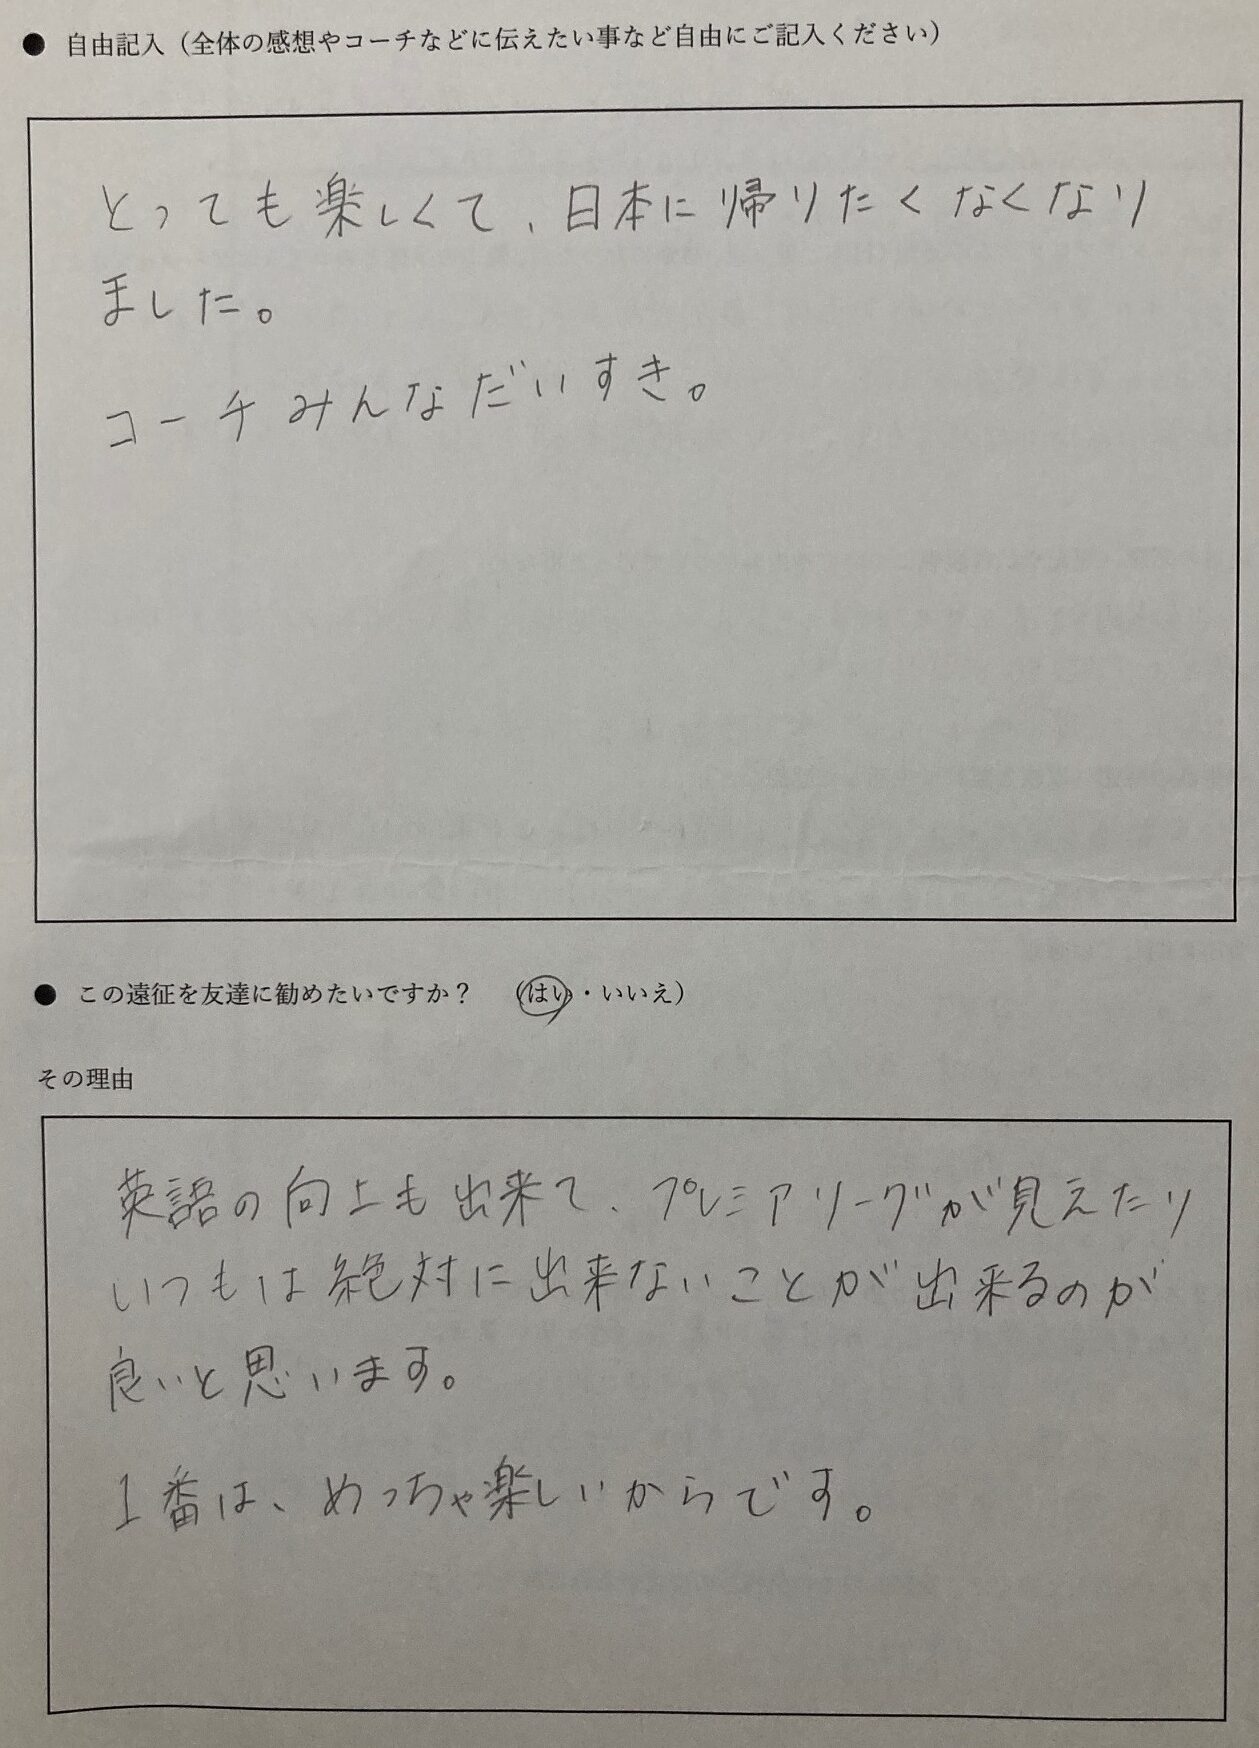 ● 自由記入（全体の感想やコーチなどに伝えたい事など自由にご記入ください）
とっても楽しくて、日本に帰りたくなくなり
ました。
コーチみんなだいすき。
● この遠征を友達に勧めたいですか？ （はい・いいえ）
その理由
英語の向上も出来て、プレミアリーグが見えたり
いつもは絶対に出来ないことが出来るのが
良いと思います。
1番は、めっちゃ楽しいからです。